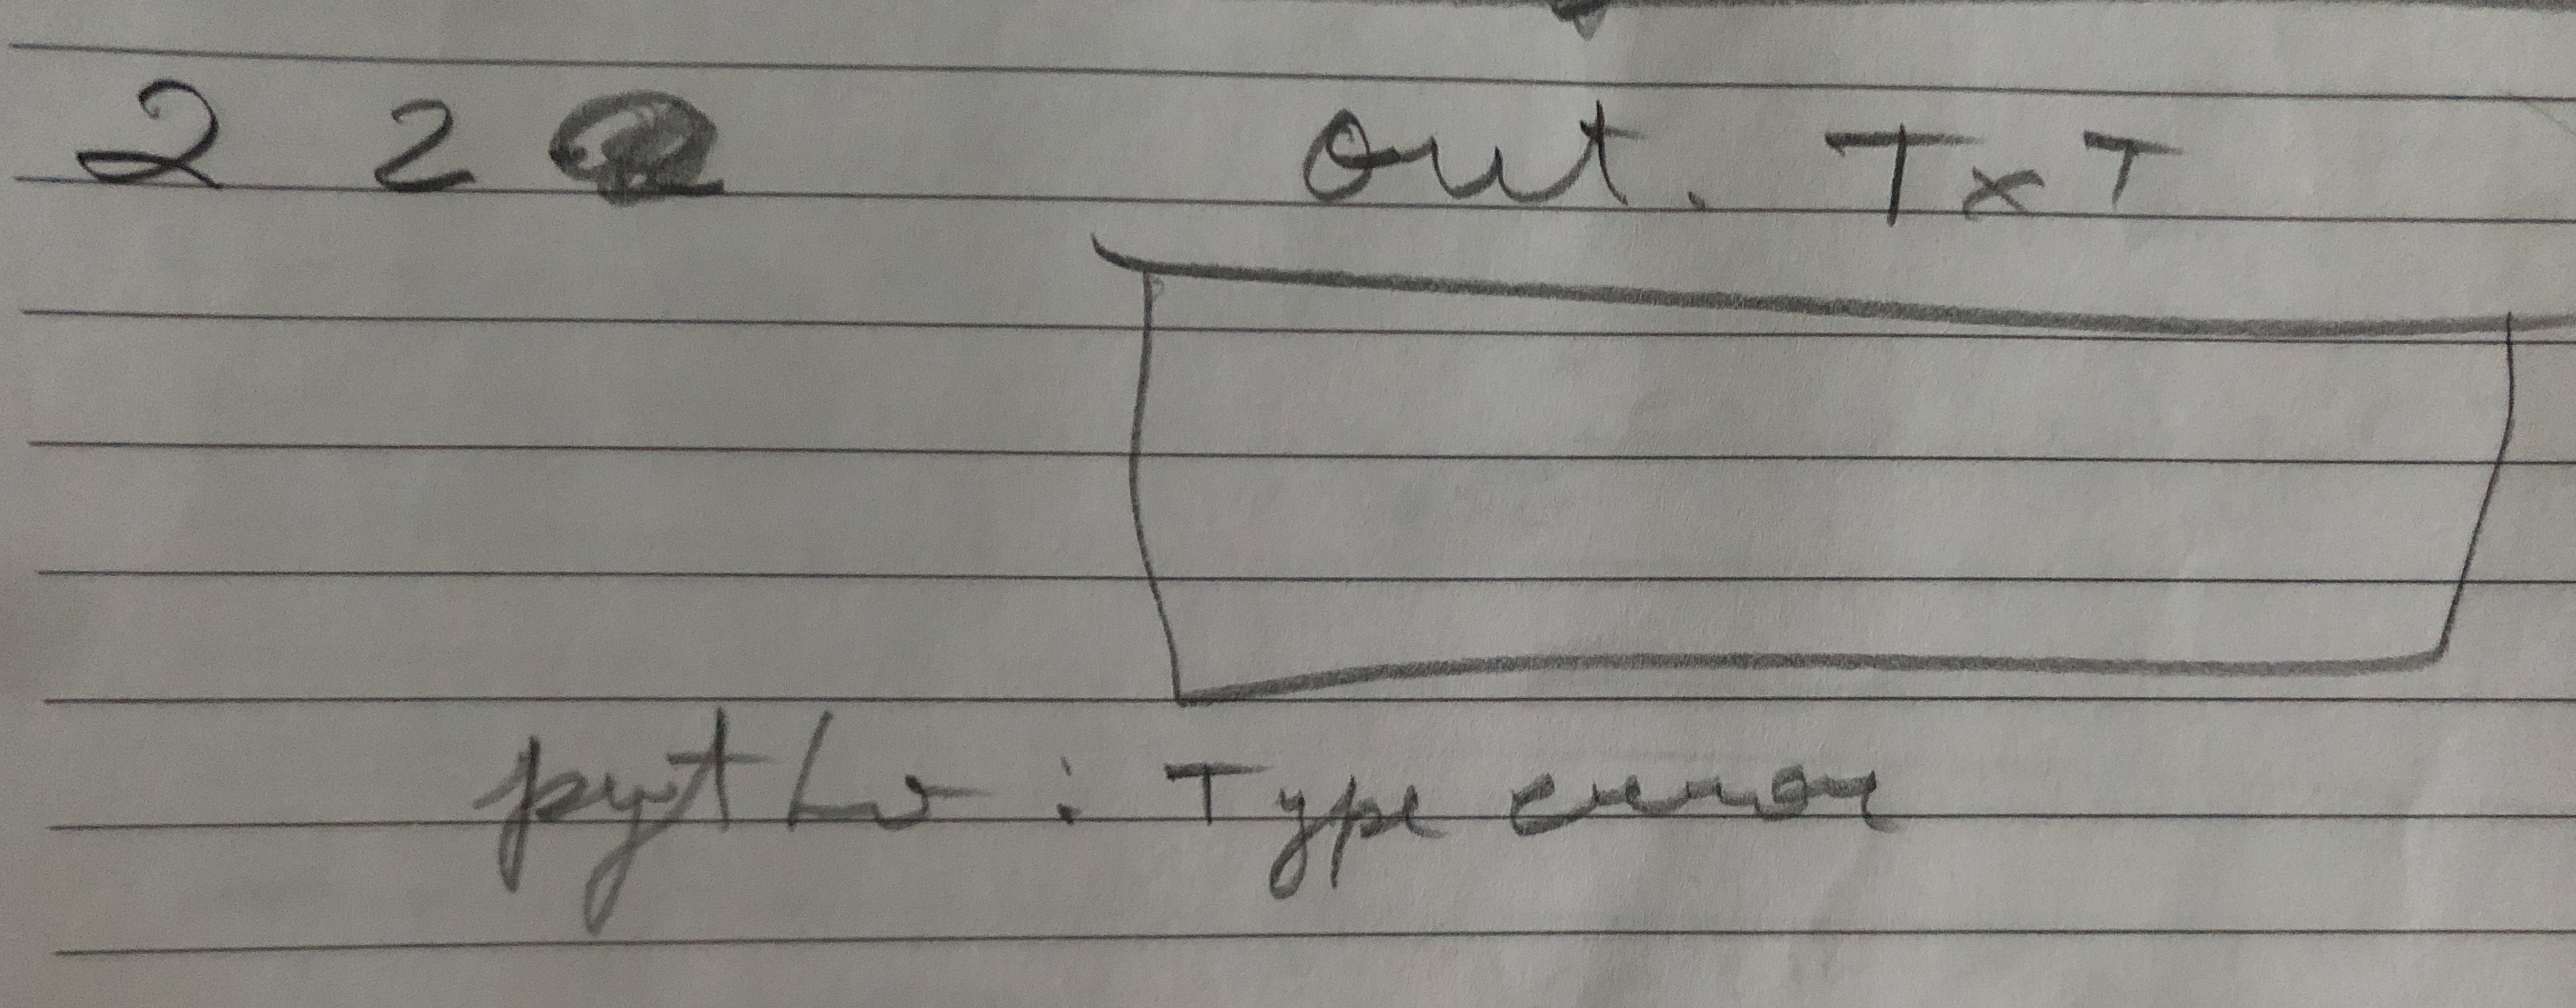 2 2 out. TxT
python : Type error